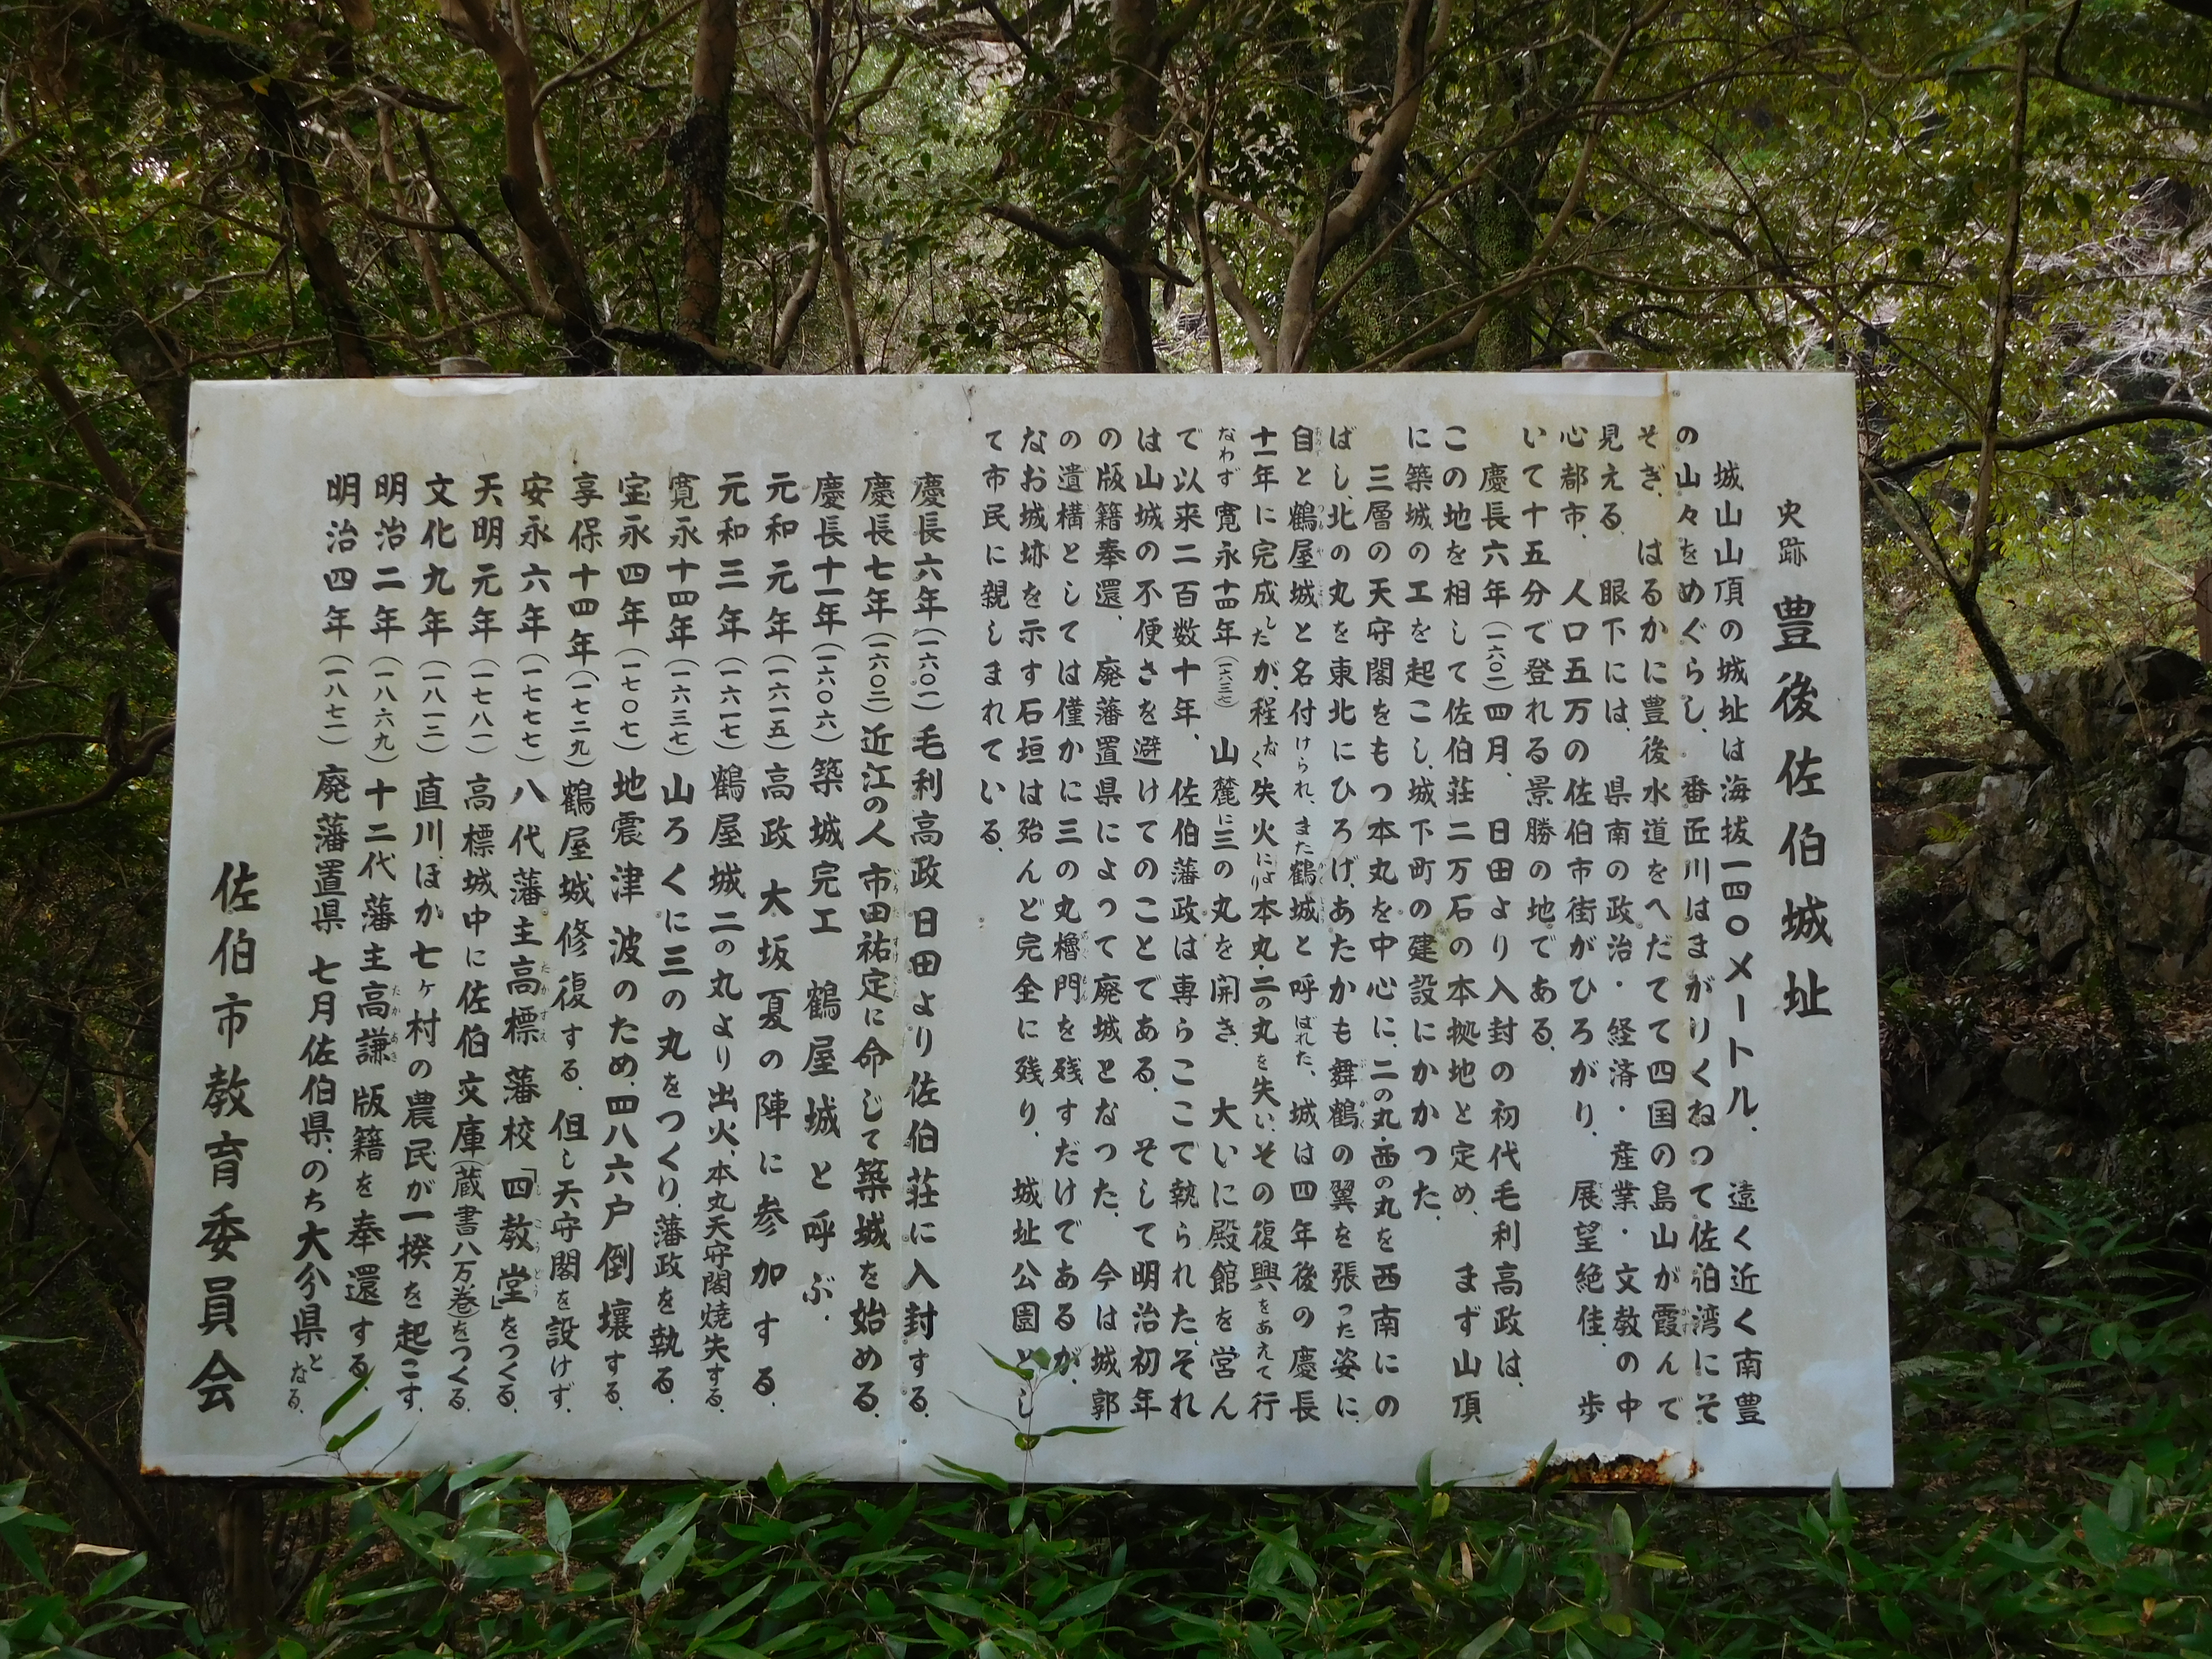 史跡 豊後佐伯城址
城山山頂の城址は海抜一四〇メートル、遠く近く南豊
の山々をめぐらし、番匠川はまがりくねって佐伯湾にそ
そぎ、はるかに豊後水道をへだてて四国の島山が霞んで
見える、眼下には、県南の政治・経済・産業・文教の中
心都市、人口五万の佐伯市街がひろがり、展望絶佳、歩
いて十五分で登れる景勝の地である、
慶長六年(一六〇一)四月、日田より入封の初代毛利高政は、
この地を相して佐伯荘二万石の本拠地と定め、まず山頂
に築城の工を起こし、城下町の建設にかかった、
三層の天守閣をもつ本丸を中心に、二の丸・西の丸を西南にの
ばし、北の丸を東北にひろげ、あたかも舞鶴の翼を張った姿に、
自と鶴屋城と名付けられ、また鶴城と呼ばれた、城は四年後の慶長
十一年に完成したが、程なく失火により本丸・二の丸を失い、その復興をあえて行
なわず寛永十四年(一六三七)山麓に三の丸を開き、大いに殿館を営ん
で以来二百数十年、佐伯藩政は専らここで執られた、それ
は山城の不便さを避けてのことである、そして明治初年
の版籍奉還、廃藩置県によって廃城となった、今は城郭
の遺構としては僅かに三の丸櫓門を残すだけであるが、
なお城跡を示す石垣は殆んど完全に残り、城址公園とし
て市民に親しまれている、
慶長六年(一六〇一)毛利高政 日田より佐伯荘に入封する、
慶長七年(一六〇二)近江の人 市田祐定に命じて築城を始める、
慶長十一年(一六〇六)築城完工 鶴屋城と呼ぶ、
元和元年(一六一五)高政 大坂夏の陣に参加する、
元和三年(一六一七)鶴屋城二の丸より出火、本丸天守閣焼失する、
寛永十四年(一六三七)山ろくに三の丸をつくり、藩政を執る、
宝永四年(一七〇七)地震津波のため、四八六戸倒壊する、
享保十四年(一七二九)鶴屋城修復する、但し天守閣を設けず、
安永六年(一七七七)八代藩主高標 藩校「四教堂」をつくる、
天明元年(一七八一)高標城中に佐伯文庫(蔵書八万巻)をつくる、
文化九年(一八一二)直川、ほか七ヶ村の農民が一揆を起こす、
明治二年(一八六九)十二代藩主高謙 版籍を奉還する、
明治四年(一八七一)廃藩置県 七月佐伯県、のち大分県となる、
佐伯市教育委員会